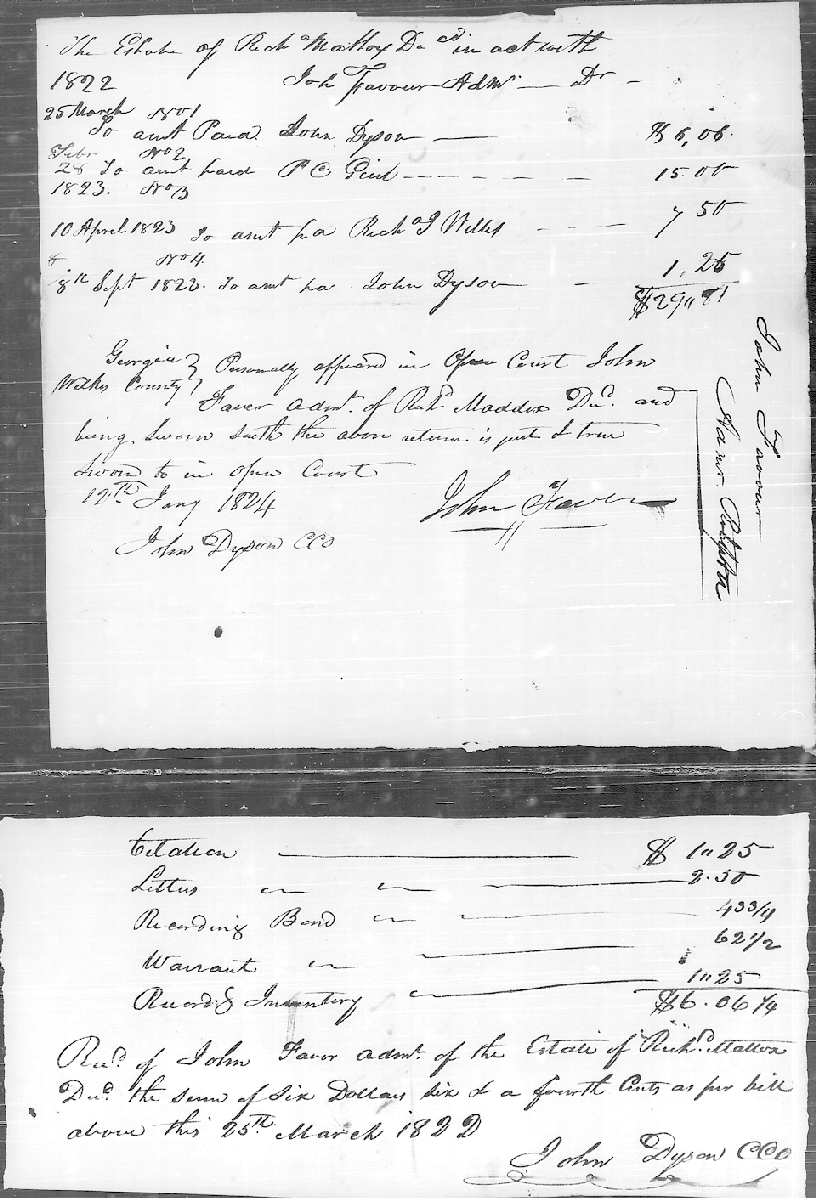 The Estate of Rich Mattox Decd in act with
1822 Joh Favour Admr — Dr —
25 March No 1
To amt Paid John Dyson — $6,06.
Febr No 2
28 To amt paid P C — — — — — 15.00
1823. No 3
10 April 1823 To amt pa Richd J Willis - - - 7 50
& No 4
8th Sept 1822. To amt pa John Dyson - 1,25
$29"81
Georgia } Personally appeared in Open Court John
Wilkes County }
Favor admr. of Richd. Maddox Decd. and
being Sworn saith the above return is just & true
Sworn to in open Court
12th Jany 1824 John Favor
John Dyson CCO
John Favour
Admr.
Citation — $ 1"25
Letters — 2.50
Recording Bond — 433/4
Warrant — 621/2
Recordg Inventory — 1"25
$6.06 1/4
Recd. of John Favor admr. of the Estate of Richd. Mattox
Decd. the sum of Six Dollars six & a fourth Cents as per bill
above this 25th March 1822
John Dyson CCO